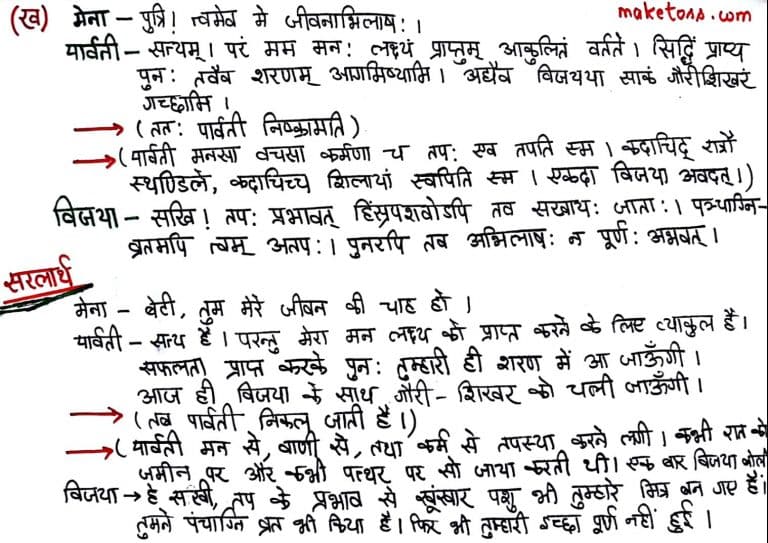 (ख) मेना - पुत्रि! त्वमेव मे जीवनाभिलाषः। maketoss.com
पार्वती - सत्यम्। परं मम मनः लक्ष्यं प्राप्तुम् आकुलितं वर्तते। सिद्धिं प्राप्य
पुनः तवैव शरणम् आगमिष्यामि। अद्यैव विजयया साकं गौरीशिखरं
गच्छामि।
→ (ततः पार्वती निष्क्रामति)
→ (पार्वती मनसा वचसा कर्मणा च तपः एव तपति स्म। कदाचिद् रात्रौ
स्थण्डिले, कदाचिच्च शिलायां स्वपिति स्म। एकदा विजया अवदत्।)
विजया - सखि! तपः प्रभावत् हिंस्रपशवोऽपि तव सखायः जाताः। पञ्चाग्नि-
व्रतमपि त्वम् अतपः। पुनरपि तव अभिलाषः न पूर्णः अभवत्।
सरलार्थ
मेना - बेटी, तुम मेरे जीवन की चाह हो।
पार्वती - सत्य है। परन्तु मेरा मन लक्ष्य को प्राप्त करने के लिए व्याकुल है।
सफलता प्राप्त करके पुनः तुम्हारी ही शरण में आ जाऊँगी।
आज ही विजया के साथ गौरी - शिखर को चली जाऊँगी।
→ (तब पार्वती निकल जाती है।)
→ (पार्वती मन से, वाणी से, तथा कर्म से तपस्या करने लगी। कभी रात को
जमीन पर और कभी पत्थर पर सो जाया करती थी। एक बार विजया बोली
विजया → हे सखी, तप के प्रभाव से खूंखार पशु भी तुम्हारे मित्र बन गए हैं।
तुमने पंचाग्नि व्रत भी किया है। फिर भी तुम्हारी इच्छा पूर्ण नहीं हुई।